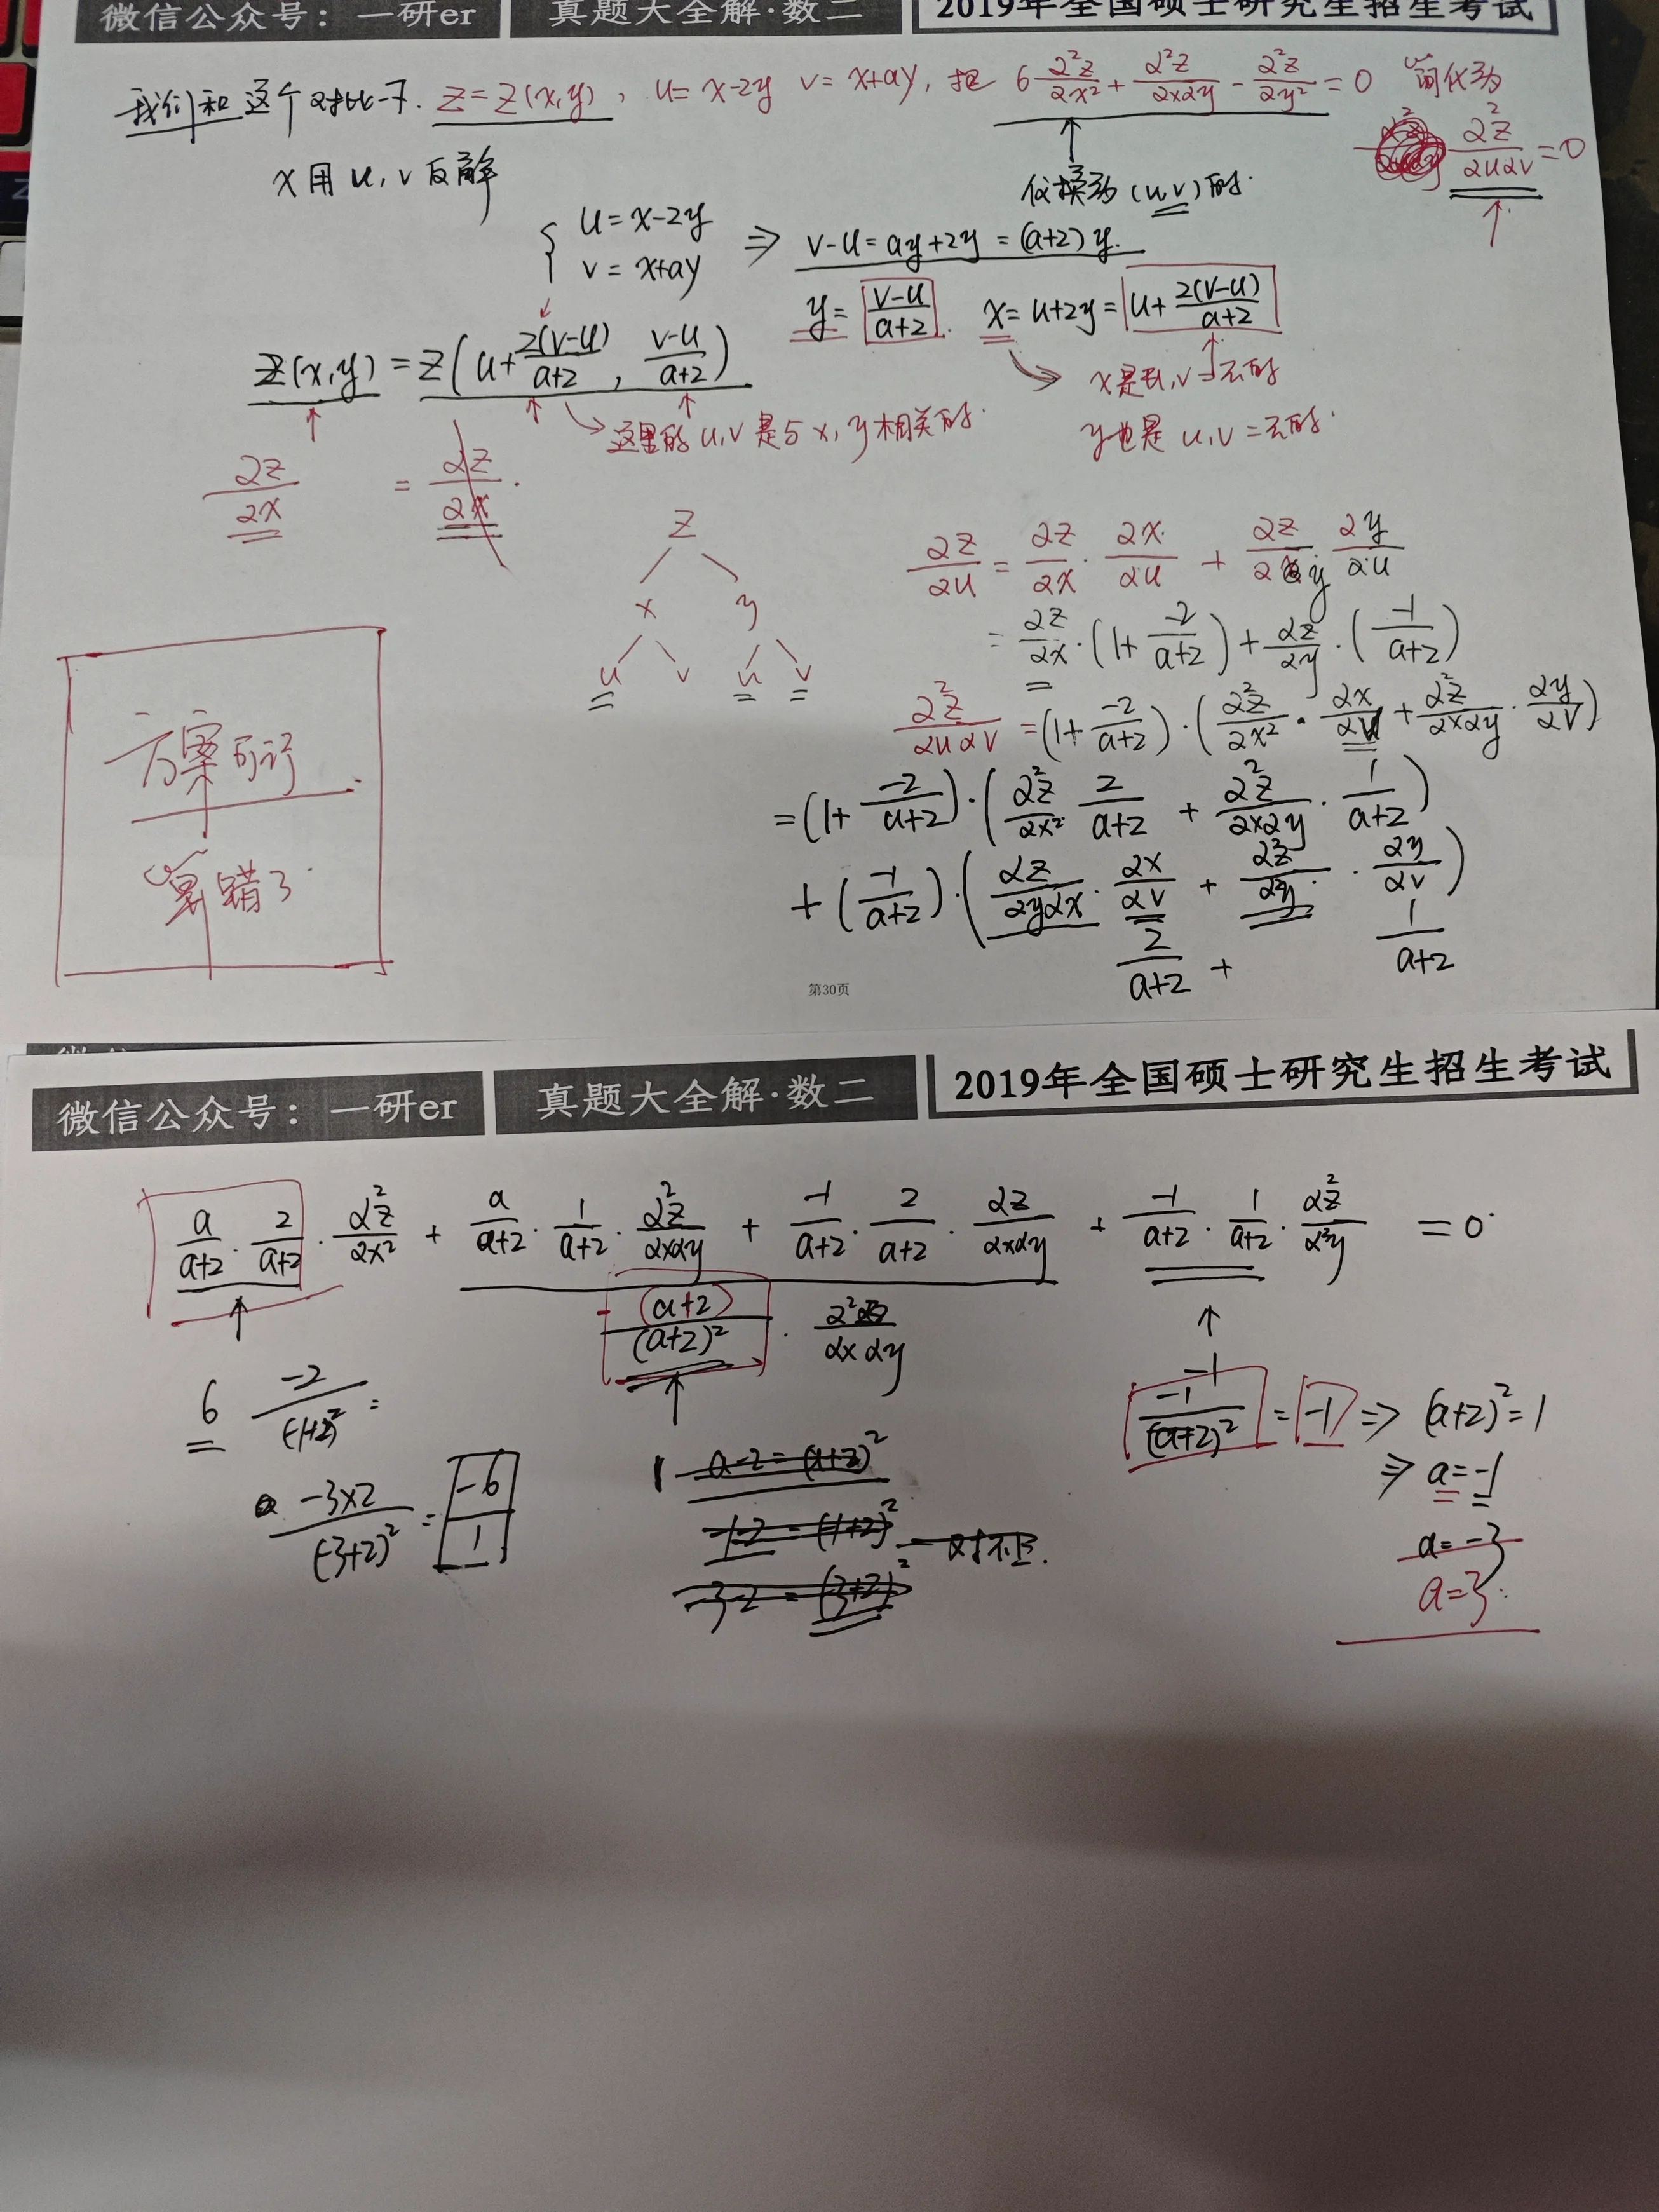 微信公众号：一研er 真题大全解·数二 2019年全国硕士研究生招生考试
我们和这个对比一下. z=z(x,y), u=x-2y v=x+ay, 把 6∂²z/∂x²+∂²z/∂x∂y-∂²z/∂y²=0 简化为
∂²z/∂u∂v=0
x用u,v反解
(u,v)的.
{ u=x-2y
v=x+ay
⇒ v-u=ay+2y=(a+2)y.
y=(v-u)/(a+2). x=u+2y=u+2(v-u)/(a+2)
z(x,y)=z(u+2(v-u)/(a+2), (v-u)/(a+2))
x是u,v二元的
这里的u,v是与x,y相关的.
y也是u,v二元的.
∂z/∂x = ∂z/∂x.
z
x y
u v u v
∂z/∂u=∂z/∂x·∂x/∂u+∂z/∂y·∂y/∂u
=∂z/∂x·(1+-2/(a+2))+∂z/∂y·(-1/(a+2))
∂²z/∂u∂v=(1+-2/(a+2))·(∂²z/∂x²·∂x/∂v+∂²z/∂x∂y·∂y/∂v)
=(1+-2/(a+2))·(∂²z/∂x² 2/(a+2)+∂²z/∂x∂y·1/(a+2))
+(-1/(a+2))·(∂z/∂y∂x·∂x/∂v+∂²z/∂²y·∂y/∂v)
2/(a+2) + 1/(a+2)
方案可行
算错了.
第30页
微信公众号：一研er 真题大全解·数二 2019年全国硕士研究生招生考试
a/(a+2)·2/(a+2)·∂²z/∂x²+a/(a+2)·1/(a+2)·∂²z/∂x∂y+-1/(a+2)·2/(a+2)·∂z/∂x∂y+-1/(a+2)·1/(a+2)·∂²z/∂²y=0
(a+2)/(a+2)²·∂²z/∂x∂y
6 -2/(-1+2)²=
-1/(a+2)²=-1⇒(a+2)²=1
⇒a=-1
-3×2/(-3+2)²=-6/1
1 a-2=(a+2)²
-1-2=(1+2)² 对不上.
-3-2=(3+2)²
a=-3
a=3.